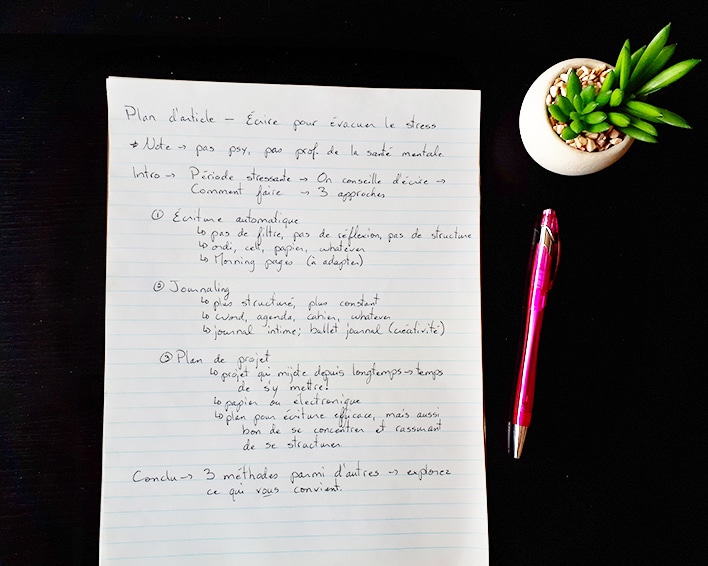 Plan d'article – Écrire pour évacuer le stress
* Note → pas psy, pas prof. de la santé mentale
Intro → Période stressante → On conseille d'écrire →
Comment faire → 3 approches
① Écriture automatique
↳ pas de filtre, pas de réflexion, pas de structure
↳ ordi, cell, papier, whatever
↳ Morning pages (à adapter)
② Journaling
↳ plus structuré, plus constant
↳ Word, agenda, cahier, whatever
↳ journal intime; bullet journal (créativité)
③ Plan de projet
↳ projet qui mijote depuis longtemps → temps
de s'y mettre!
↳ papier ou électronique
↳ plan pour écriture efficace, mais aussi
bon de se concentrer et rassurant
de se structurer
Conclu → 3 méthodes parmi d'autres → explorez
ce qui vous convient.